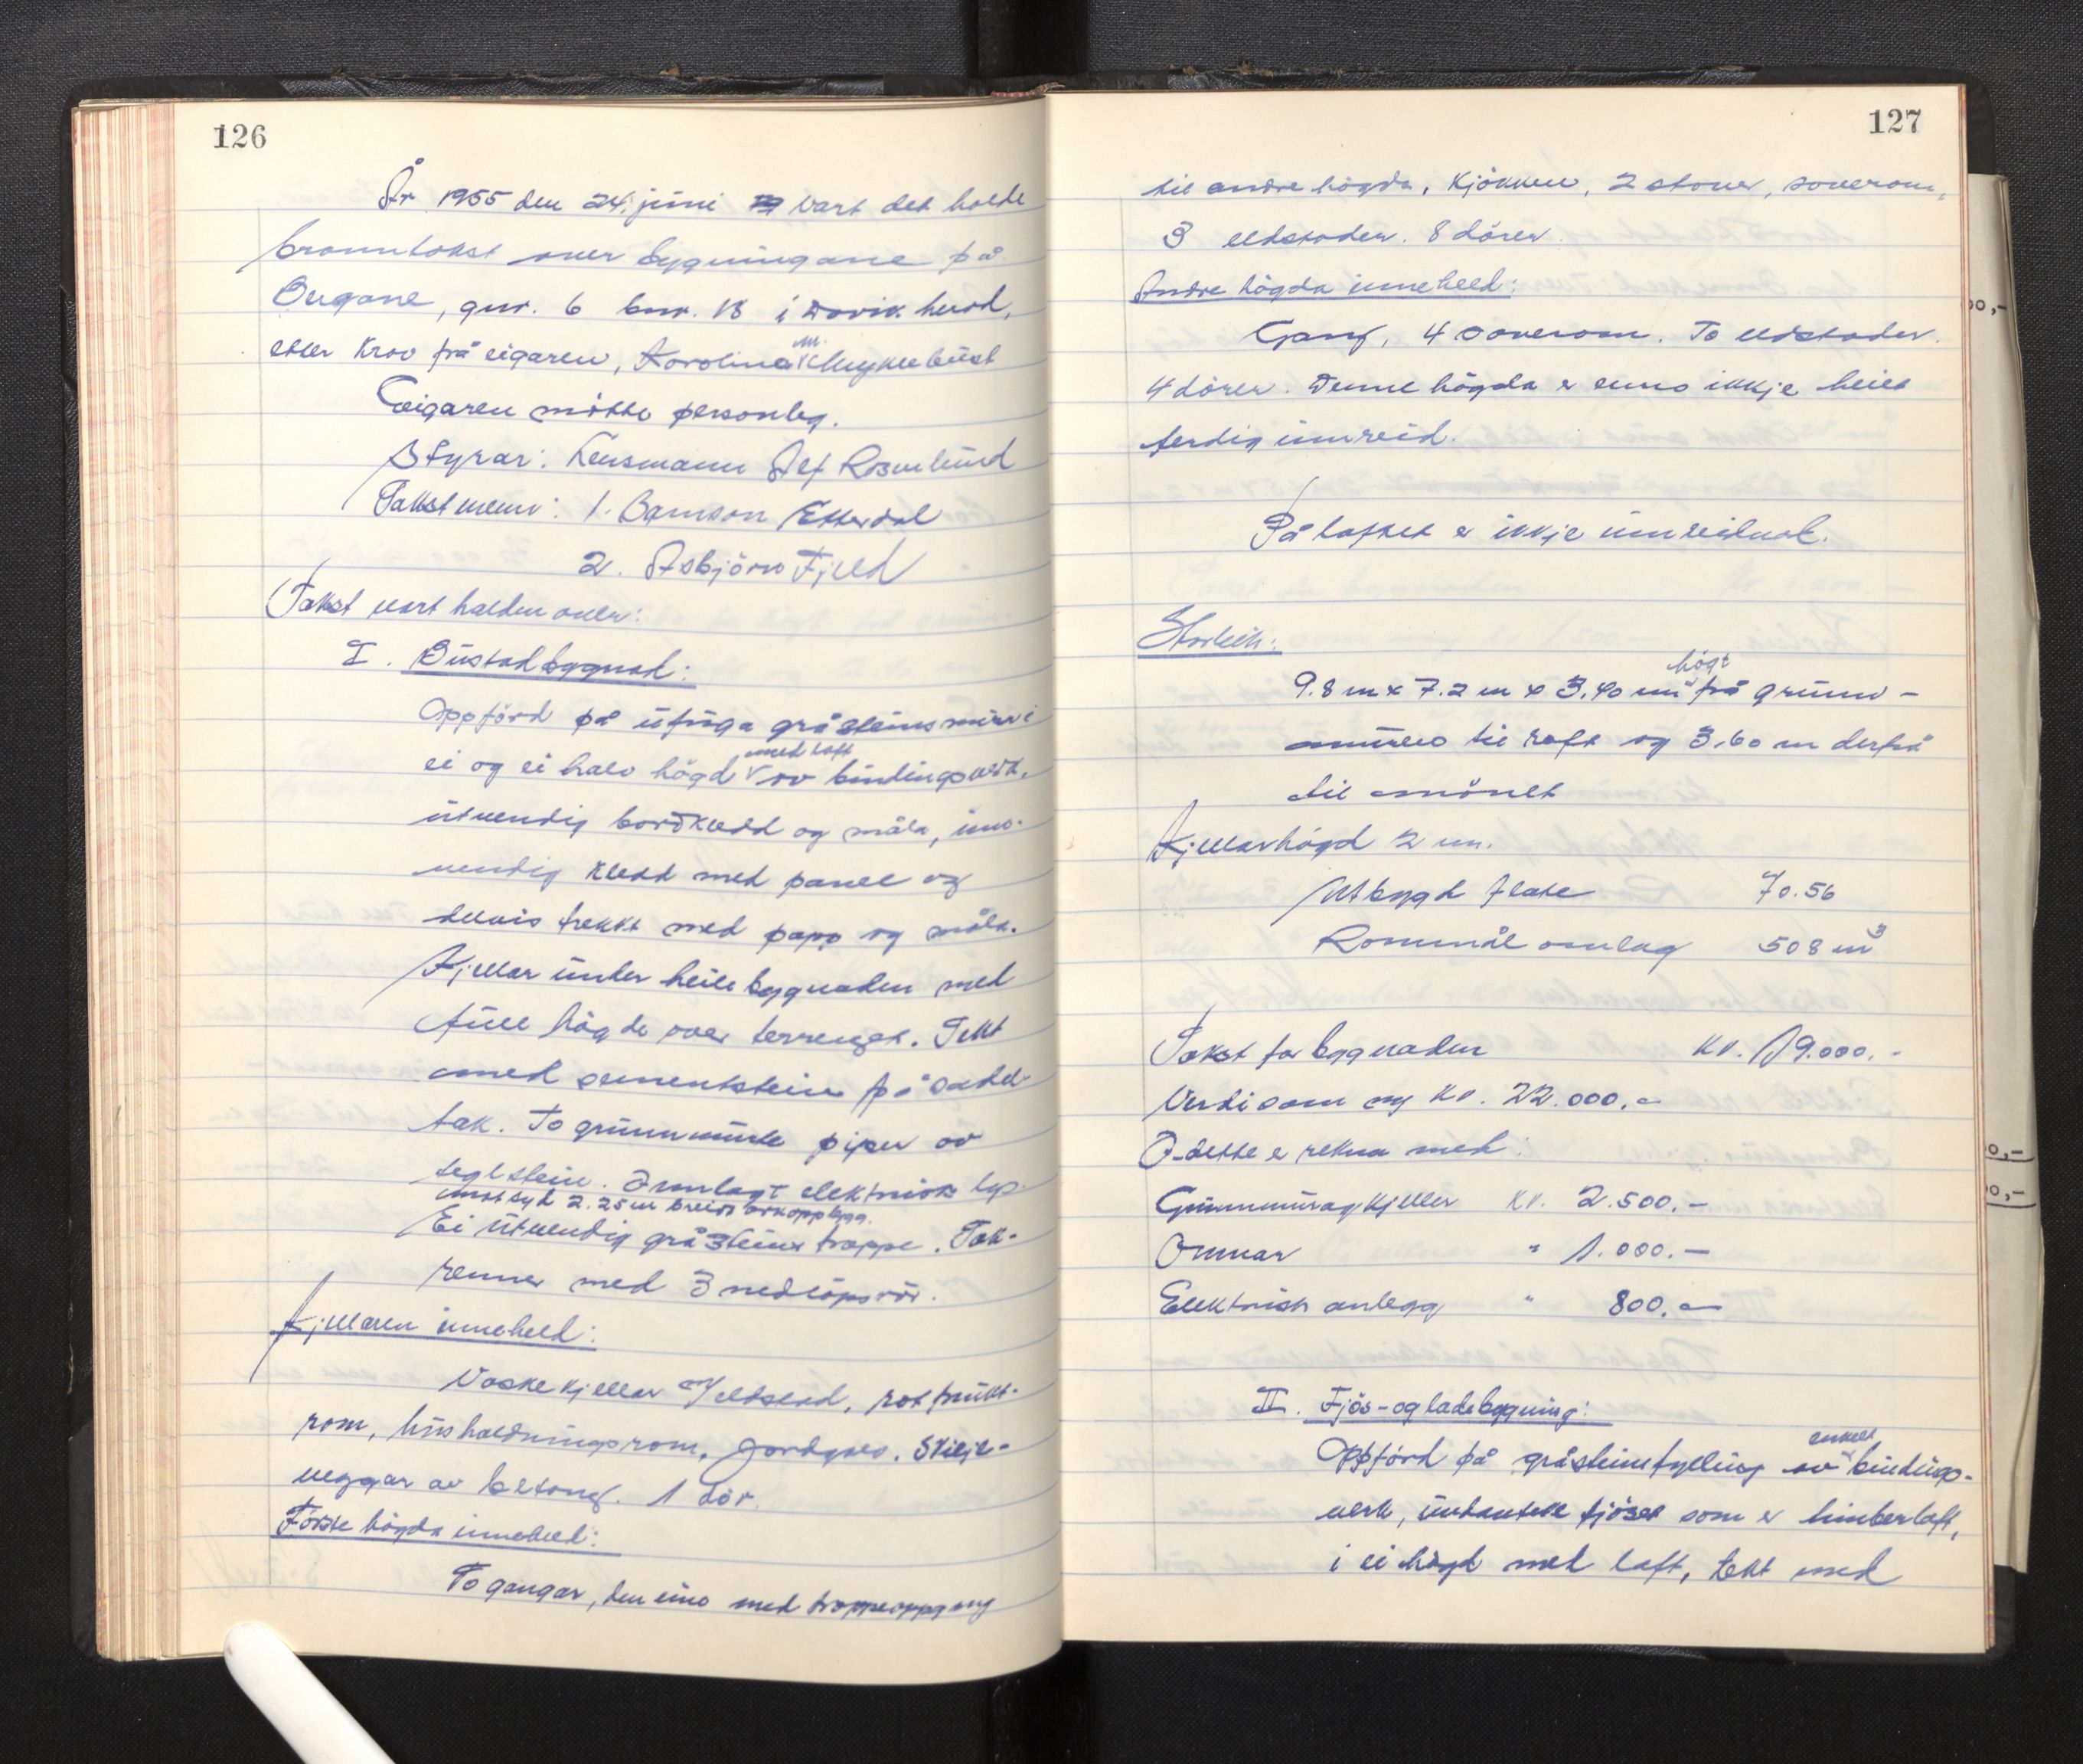 126
År 1955 den 24. juni vart det halde
branntakst over bygningane på
Bergane, gnr. 6 bnr. 18 i Davik herad,
etter krav frå eigaren, Karolina M. Myklebust
Eigaren møtte personleg.
Styrar: Lensmann Alf Rosenlund
Takstmenn: 1. Ramson Etterdal
2. Asbjörn Fjeld
Takst vart halden over:
I. Bustadbygnad:
Oppförd på ufuga gråsteinsmur i
ei og ei halv högd med loft av bindingsverk,
utvendig bordkledd og måla, inn-
vendig kledd med panel og
delvis trekkt med papp og måla.
Kjellar under heile bygnaden med
full högde over terrenget. Tekt
med sementstein på sadel-
tak. To grunnmurte piper av
teglstein. Innlagt elektrisk lys.
mot syd 2.25 m breid arkoppbygg.
Ei utvendig gråsteins trappe. Tak-
renner med 3 nedlöpsrör.
Kjellaren inneheld:
Vaskekjellar m/eldstad, rotfrukt-
rom, husholdningsrom. Jordgolv. Skilje-
veggar av betong. 1 dör.
Förste högda inneheld:
To gangar, den eine med trappeoppgang
127
til andre högda, kjökken, 2 stover, soverom,
3 eldstader. 8 dörer.
Andre högda inneheld:
Gang, 4 soverom. To eldstader.
4 dörer. Denne högda er enno ikkje heilt
ferdig innreid.
På loftet er ikkje innreidnat.
Storleik:
9.8 m x 7.2 m x 3,40 m högt frå grunn-
muren til raft og 3,60 m derfrå
til mönet
Kjellarhögd 2 m.
Utbygd flate 70.56
Rommål omlag 508 m³
Takst for bygnaden kr. 19.000.-
Verdi som ny kr. 22.000.-
I dette er rekna med:
Grunnmur og kjeller kr. 2.500.-
Omnar " 1.000.-
Elektrisk anlegg " 800.-
II. Fjös- og ladebygning:
Oppförd på gråsteinsfylling av enkelt bindings-
verk, undanteke fjöset som er timberlaft,
i ei högd med loft, tekt med
00,-
0,-
0,-